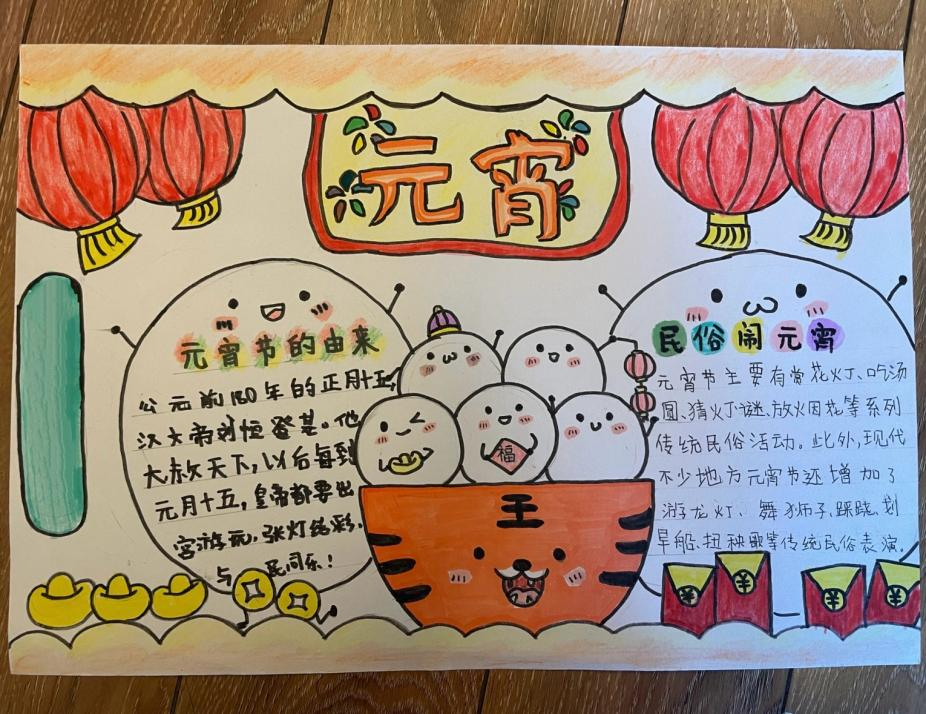 元宵
元宵节的由来
公元前180年的正月十五,
汉大帝刘恒登基。他
大赦天下,以后每到
元月十五,皇帝都要出
宫游玩,张灯结彩,
与民同乐!
福
王
民俗闹元宵
元宵节主要有赏花灯、吃汤
圆、猜灯谜、放烟花等系列
传统民俗活动。此外,现代
不少地方元宵节还增加了
游龙灯、舞狮子、踩跷、划
旱船、扭秧歌等传统民俗表演。
¥
¥
¥
¥